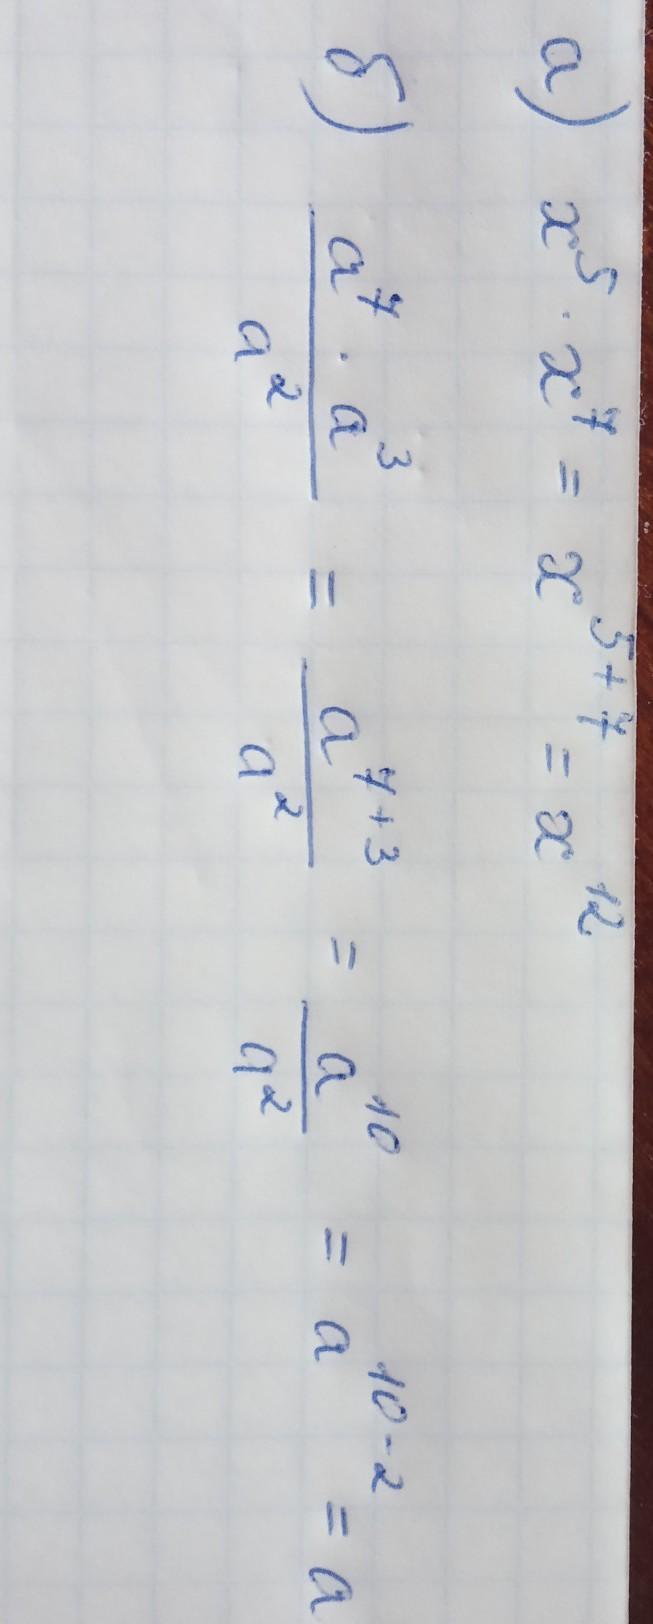 а) x⁵ · x⁷ = x⁵⁺⁷ = x¹²
б) (a⁷ · a³)/a² = a⁷⁺³/a² = a¹⁰/a² = a¹⁰⁻² = a